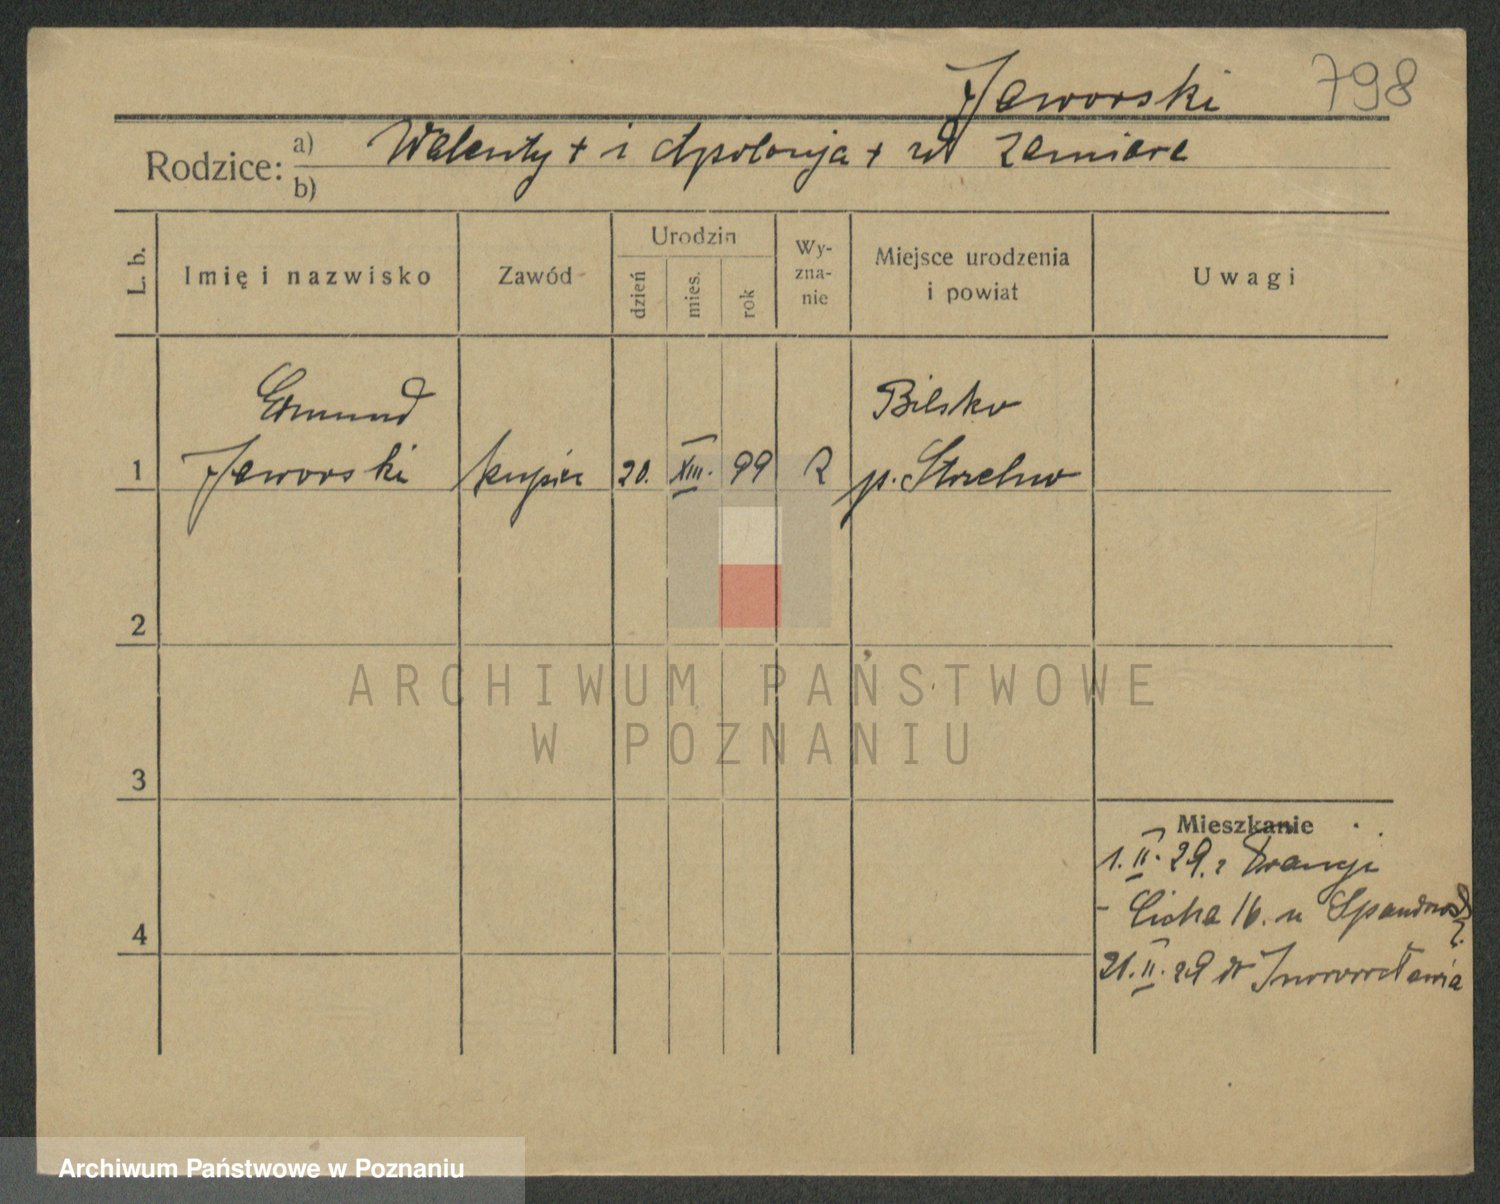 Jaworski 798
Rodzice: a) Walenty + i Apolonja + zd Zamiara
b)
L. b. Imię i nazwisko Zawód Urodzin dzień mies. rok Wy-zna-nie Miejsce urodzenia i powiat Uwagi
Edmund Bilsko
1 Jaworski kupiec 20. 99 R p. Strzelno
2
ARCHIWUM PAŃSTWOWE
W POZNANIU
3
Mieszkanie
1. II. 29. z Francji
- Cicha 16. u
4
21. II. 29 do Inowrocławia
Archiwum Państwowe w Poznaniu